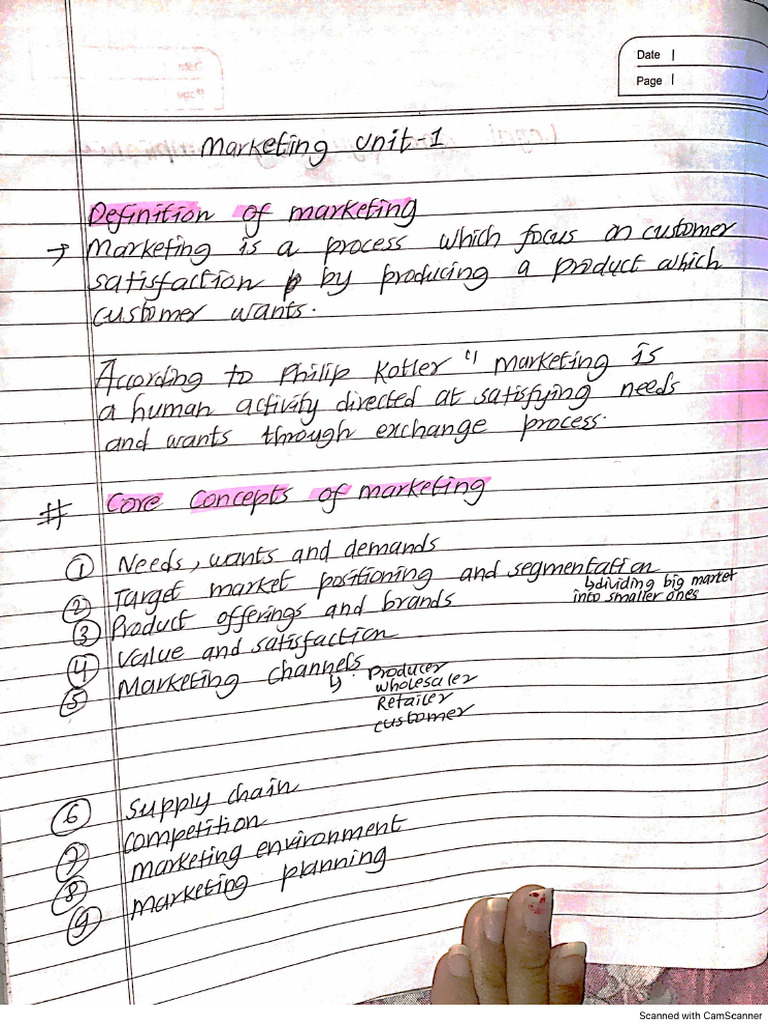 Date
Page
Marketing Unit-1
Definition of marketing
→ Marketing is a process which focus on customer
satisfaction by producing a product which
customer wants.
According to Philip Kotler " Marketing is
a human activity directed at satisfying needs
and wants through exchange process.
# Core Concepts of marketing
① Needs, wants and demands
② Target market positioning and segmentation
↳ dividing big market
into smaller ones
③ Product offerings and brands
④ Value and satisfaction
⑤ Marketing channels
↳ Producer
wholesaler
Retailer
customer
⑥ Supply chain
⑦ competition
⑧ marketing environment
⑨ marketing planning
Scanned with CamScanner